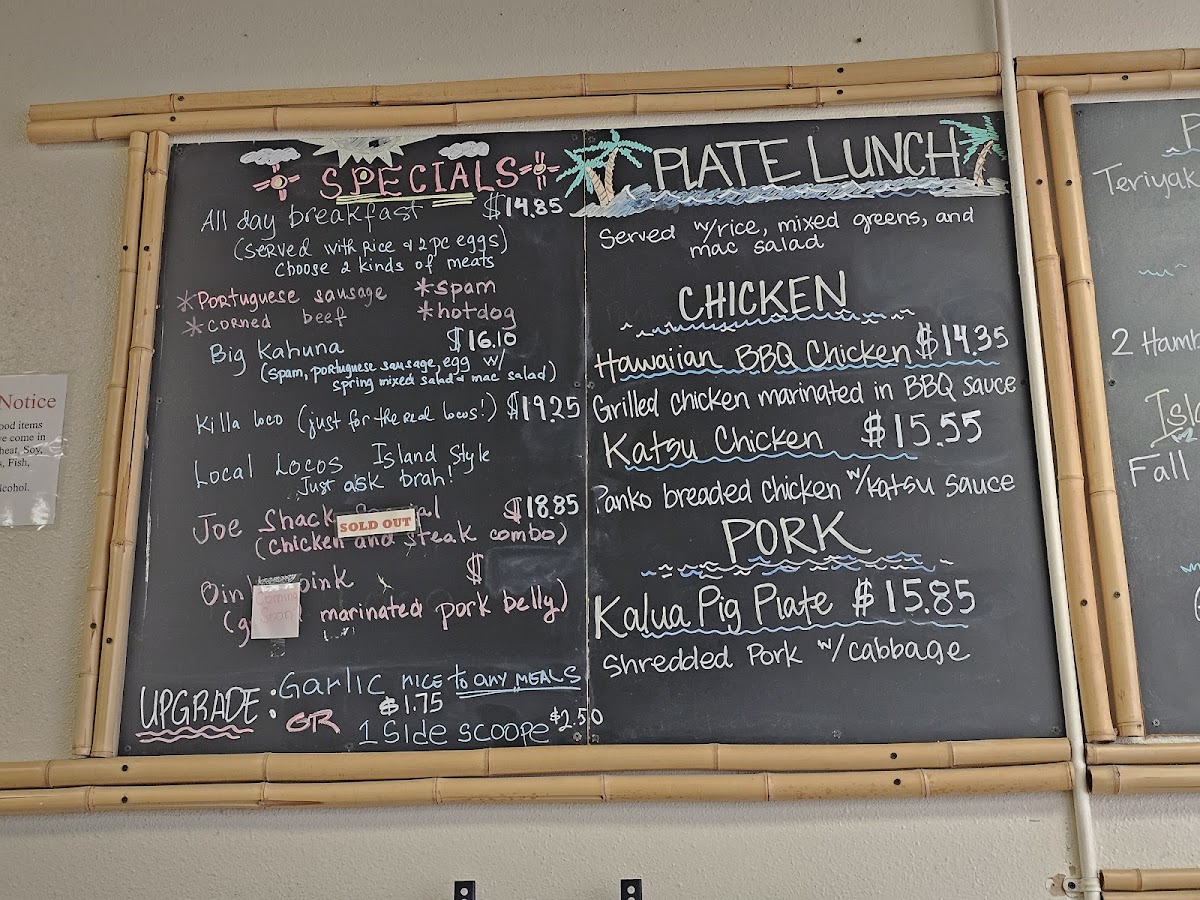 SPECIALS
All day breakfast $14.85
(Served with Rice & 2pc eggs)
Choose 2 kinds of meats
*Portuguese sausage *spam
*corned beef *hotdog
Big Kahuna $16.10
(Spam, portuguese sausage, egg w/
spring mixed salad & mac salad)
Killa loco (just for the real locos!) $19.25
Local Locos Island Style
Just ask brah!
Joe Shack $18.85
SOLD OUT
(chicken and steak combo)
oink $
Coming Soon
marinated pork belly)
UPGRADE: Garlic RICE to any MEALS
$1.75
OR 1 Side scoope $2.50
PLATE LUNCH
Served w/rice, mixed greens, and
mac salad
CHICKEN
Hawaiian BBQ Chicken $14.35
Grilled chicken marinated in BBQ sauce
Katsu Chicken $15.55
Panko breaded chicken w/katsu sauce
PORK
Kalua Pig Plate $15.85
Shredded Pork w/cabbage
P
Teriyak
2 Hamb
Isl
Fall
Notice
ood items
ve come in
heat, Soy,
s, Fish,
lcohol.